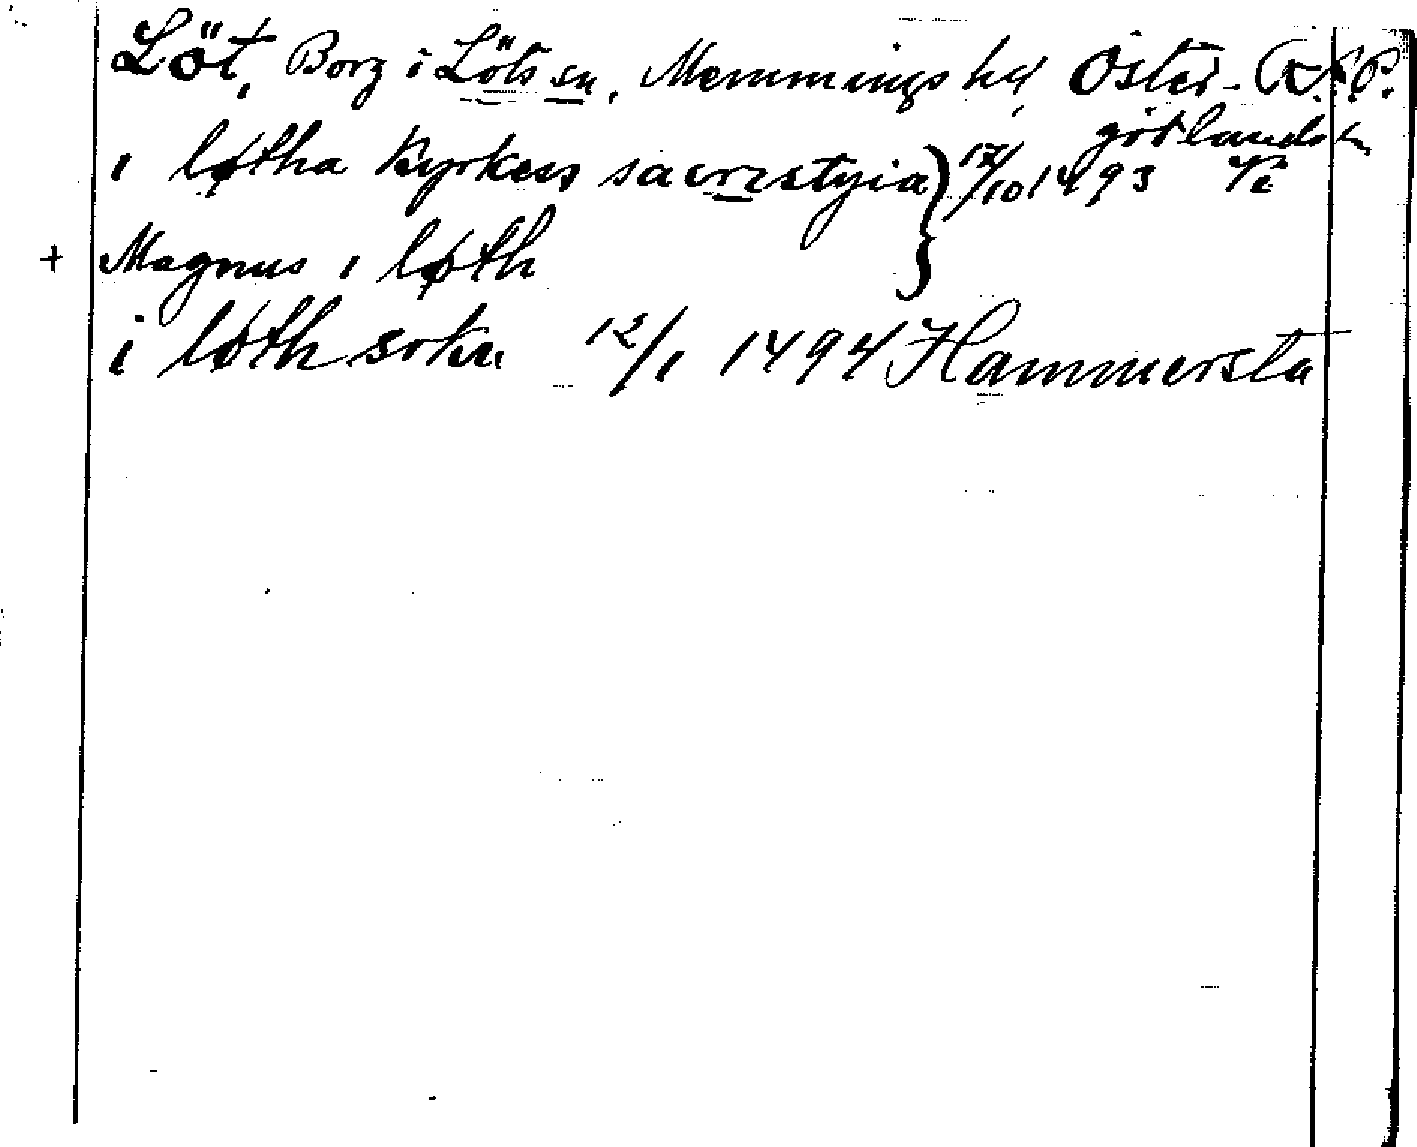 Löt, Borg i Löts sn, Memmings hd Öster- R.A.P.
götlands ln
i løtha kyrkess sacrestyia } 17/10 1493
+ Magnus i løth
i løth sokn 12/1 1494 Hammersta